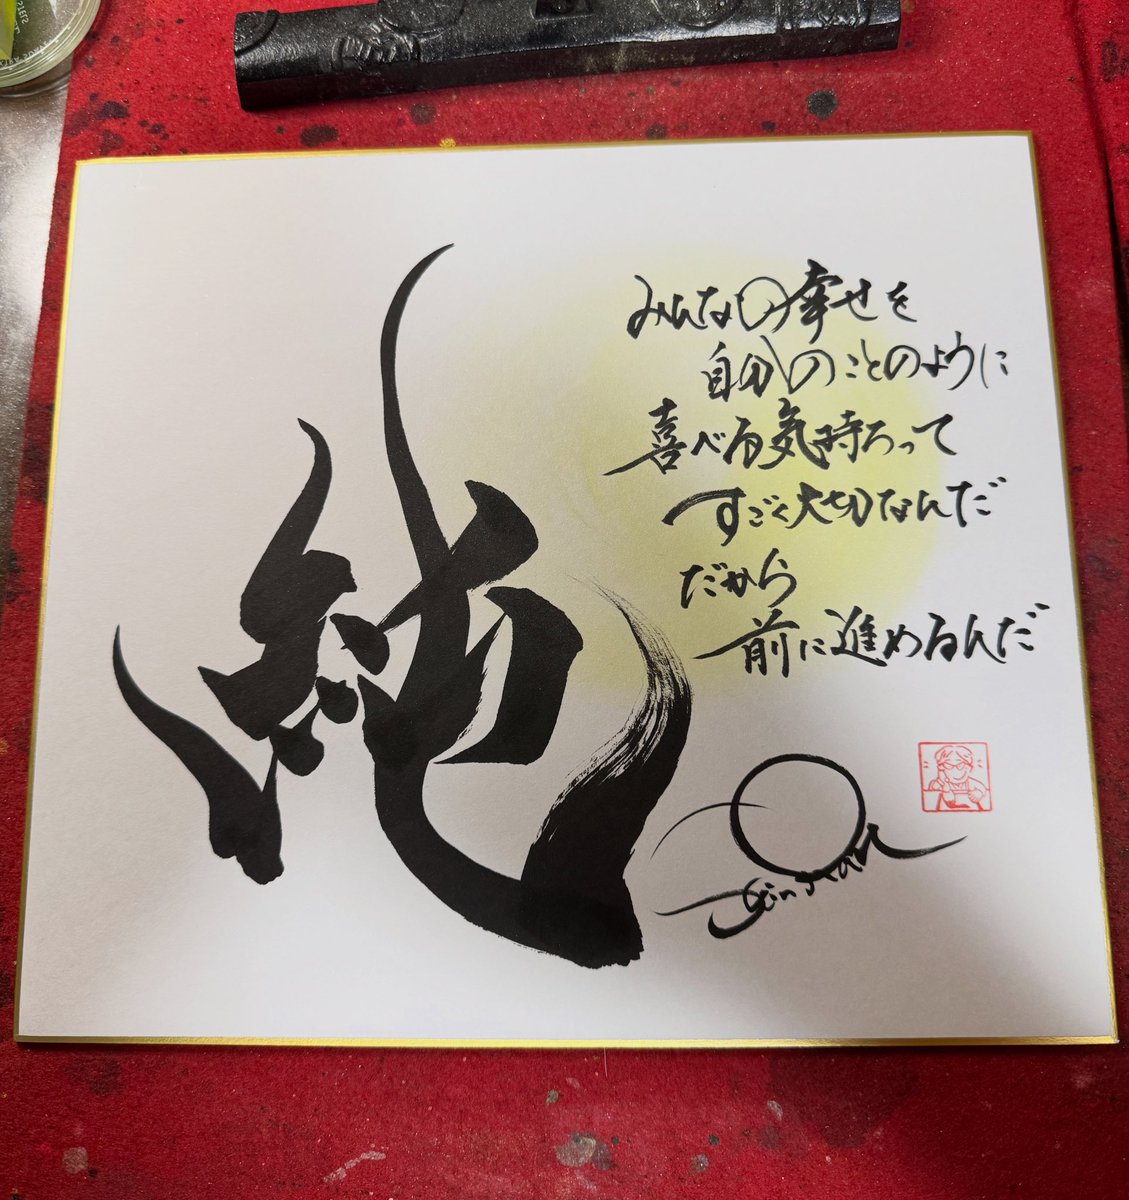 純
みんなの幸せを
自分のことのように
喜べる気持ちって
すごく大切なんだ
だから
前に進めるんだ